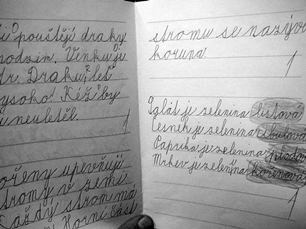 pouštějí draky
Venku je
dr. Draku, leť
vysoko! Kéž by
neuletěl.
1
kořeny upevňují
stromy v zemi.
Každý strom má
Horní část
stromu se nazývá
koruna.
1
Špenát je zelenina listová.
Česnek je zelenina cibulová.
Paprika je zelenina plodová.
Mrkev je zelenina kořenová.
1